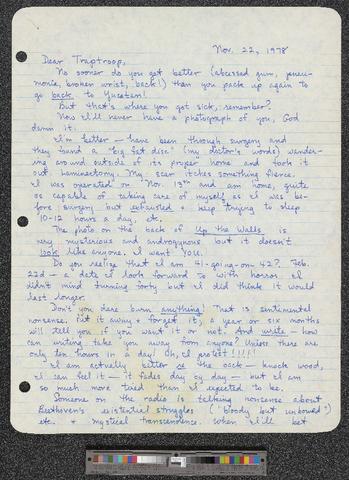 Nov. 22, 1978
Dear Traptroop,
No sooner do you get better (abscessed gum, pneu-
monia, broken wrist, back!) than you pack up again to
go back to Yucatan!
But that's where you got sick, remember?
Now I'll never have a photograph of you, God
damn it.
I'm better — have been through surgery and
they found a "big fat disc" (my doctor's words) wander-
ing around outside of its proper home and took it
out. Laminectomy. My scar itches something fierce.
I was operated on Nov. 13th and am home, quite
as capable of taking care of myself as I was be-
fore surgery but exhausted & keep trying to sleep
10-12 hours a day, etc.
The photo on the back of Up the Walls is
very mysterious and androgynous but it doesn't
look like anyone. I want YOU.
Do you realize that I am 41-going-on 42? Feb.
22d — a date I look forward to with horror. I
didn't mind turning forty but I did think it would
last longer.
Don't you dare burn anything! That is sentimental
nonsense. Put it away & forget it; a year or six months
will tell you if you want it or not. And write — how
can writing take you away from anyone? Unless there are
only ten hours in a day! Oh, I protest!!!!
I am actually better re the back — knock wood,
I can feel it — it fades day by day — but I am
so much more tired than I expected to be.
Someone on the radio is talking nonsense about
Beethoven's existential struggles ("bloody but unbowed")
etc. & mystical transcendence. When I'll bet